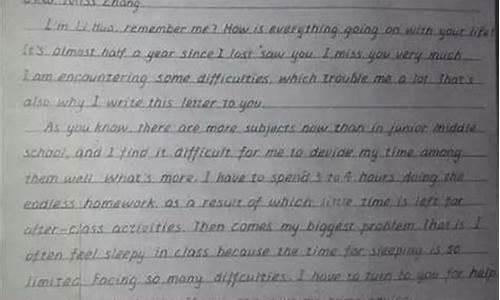 Dear Miss Zhang
I'm Li Hua, remember me? How is everything going on with your life?
It's almost half a year since I last saw you. I miss you very much.
I am encountering some difficulties, which trouble me a lot. That's
also why I write this letter to you.
As you know, there are more subjects now than in junior middle
school, and I find it difficult for me to devide my time among
them well. What's more, I have to spend 3 to 4 hours doing the
endless homework, as a result of which little time is left for
after-class activities. Then comes my biggest problem. That is I
often feel sleepy in class because the time for sleeping is so
limited. Facing so many difficulties, I have to turn to you for help